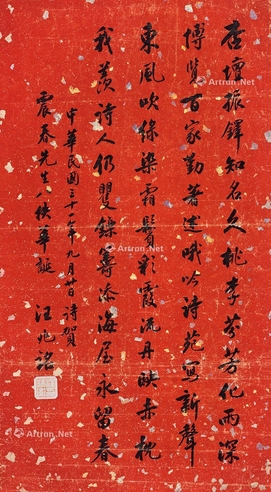 杏壇振鐸知名久桃李芬芳化雨深
博覽百家勤著述哦吟詩苑寫新聲
東風吹綠染霜鬢彩霞流丹映赤忱
我羨詩人仍矍鑠籌添海屋永留春
中華民國三十一年九月廿日詩賀
震春先生八秩華誕 汪兆銘
Artron.Net
Artron.Net
Artron.Net
Artron.Net
Artron.Net